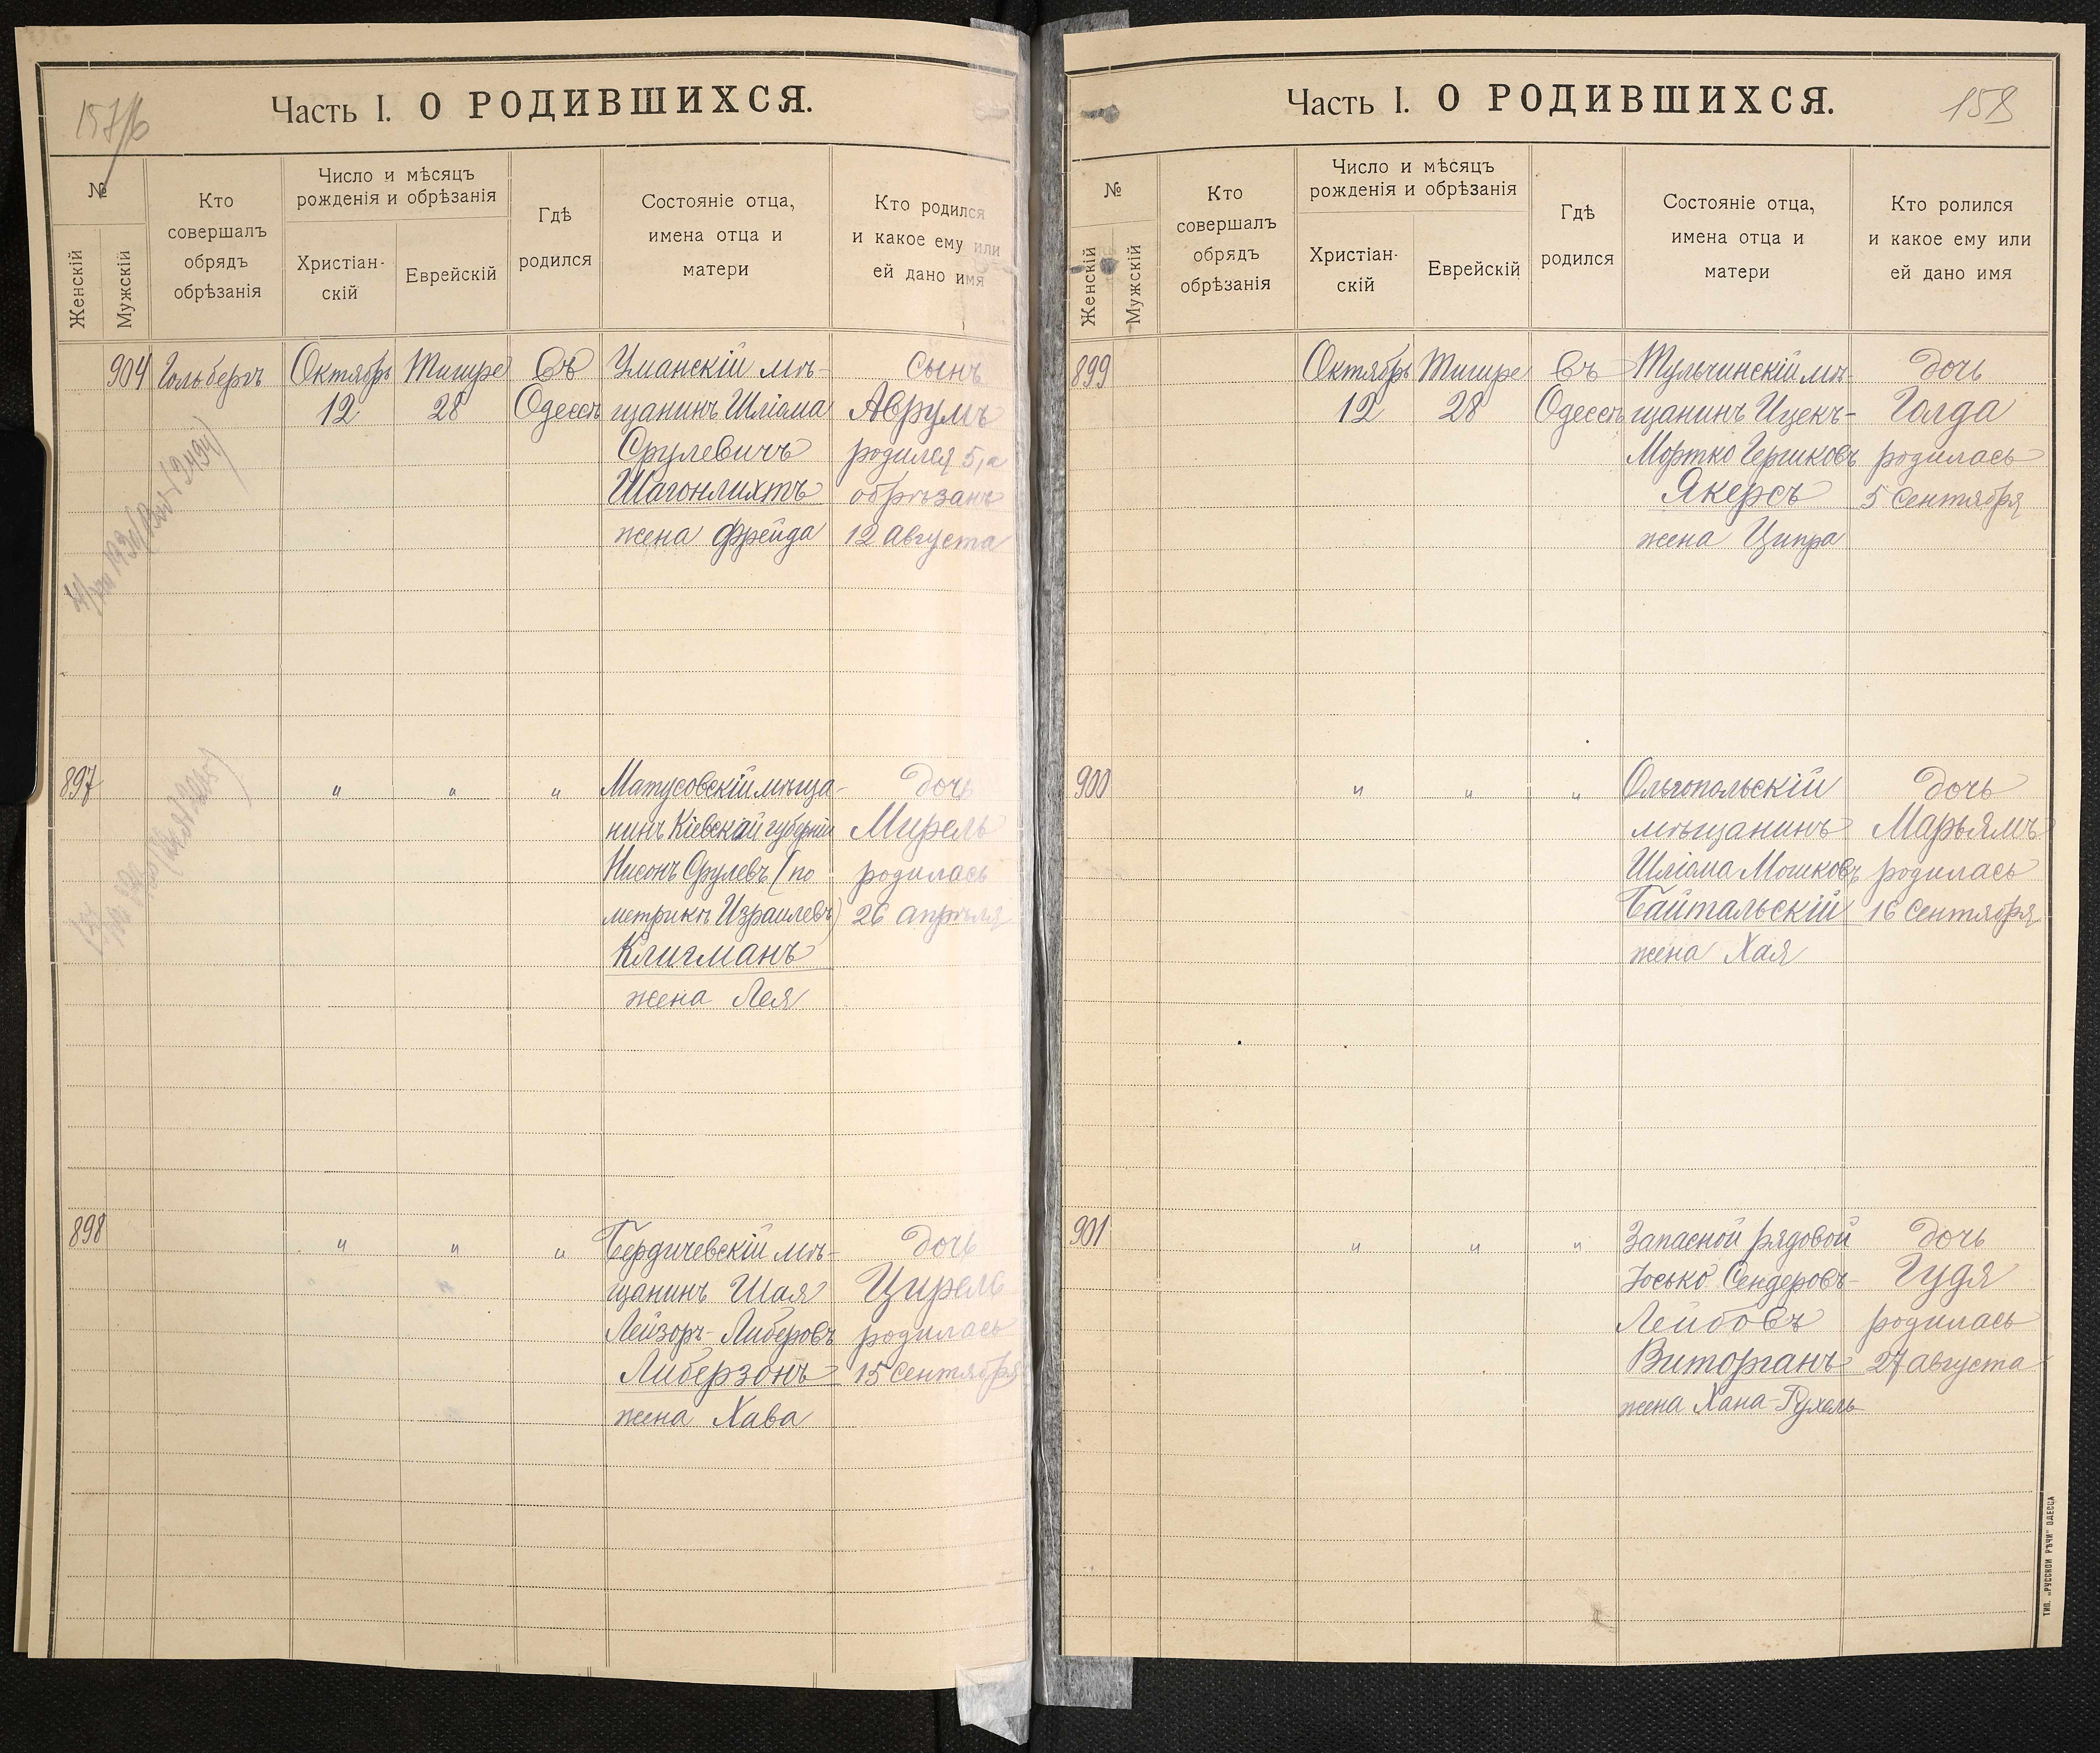 Часть I. О РОДИВШИХСЯ.
№
Женскій
Мужскій
Кто
совершалъ
обрядъ
обрѣзанія
Число и мѣсяцъ
рожденія и обрѣзанія
Христіан-
скій
Еврейскій
Гдѣ
родился
Состояніе отца,
имена отца и
матери
Кто родился
и какое ему или
ей дано имя
904
Гольбергъ
Октябрь
12
Тишре
28
Въ
Одессѣ
Уманскій мѣ-
щанинъ Шліома
Срулевичъ
Шагонлихтъ
жена Фрейда
Сынъ
Аврумъ
родился 5, а
обрѣзанъ
12 Августа
897
" " "
Матусовскій мѣща-
нинъ Кіевской губерніи
Нисонъ Срулевъ (по
метрикѣ Израилевъ)
Клигманъ
жена Лея
дочь
Мирель
родилась
26 апрѣля
898
" " "
Бердичевскій мѣ-
щанинъ Шая
Лейзоръ-Либеровъ
Либерзонъ
жена Хава
дочь
Цирель
родилась
15 Сентября
Часть I. О РОДИВШИХСЯ.
158
№
Женскій
Мужскій
Кто
совершалъ
обрядъ
обрѣзанія
Число и мѣсяцъ
рожденія и обрѣзанія
Христіан-
скій
Еврейскій
Гдѣ
родился
Состояніе отца,
имена отца и
матери
Кто ролился
и какое ему или
ей дано имя
899
Октябрь
12
Тишре
28
Въ
Одессѣ
Тульчинскій мѣ-
щанинъ Ицекъ-
Мортко Гершковъ
Якерсъ
жена Ципра
дочь
Голда
родилась
5 Сентября
900
" " "
Ольгопольскій
мѣщанинъ
Шліома Мошковъ
Байтальскій
жена Хая
дочь
Марьямъ
родилась
16 Сентября
901
" " "
Запасной рядовой
Іосько Сендеровъ-
Лейбовъ
Виторганъ
жена Хана-Рухель
дочь
Гудя
родилась
27 августа
ТИП. „РУССКОЙ РѢЧИ" ОДЕССА